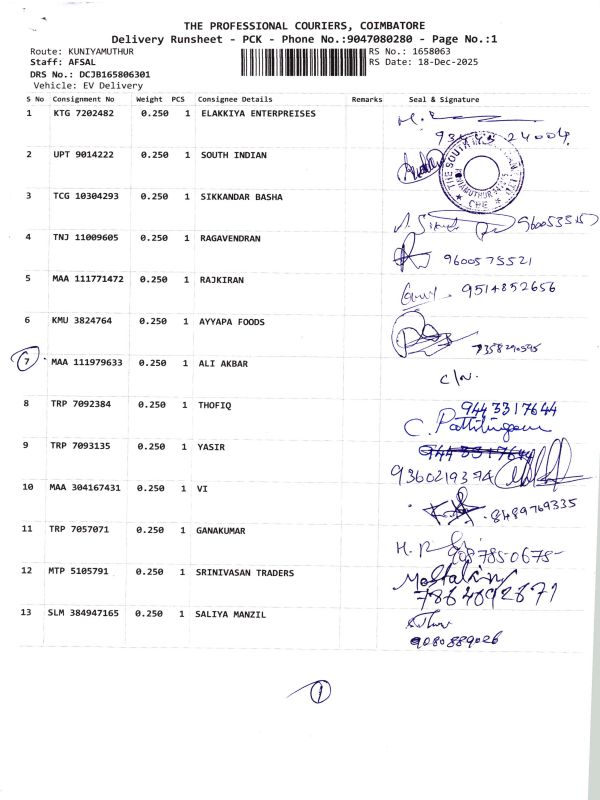 THE PROFESSIONAL COURIERS, COIMBATORE
Delivery Runsheet - PCK - Phone No.:9047080280 - Page No.:1
Route: KUNIYAMUTHUR RS No.: 1658063
Staff: AFSAL RS Date: 18-Dec-2025
DRS No.: DCJB165806301
Vehicle: EV Delivery
S No Consignment No Weight PCS Consignee Details Remarks Seal & Signature
1 KTG 7202482 0.250 1 ELAKKIYA ENTERPREISES
2 UPT 9014222 0.250 1 SOUTH INDIAN
3 TCG 10304293 0.250 1 SIKKANDAR BASHA
4 TNJ 11009605 0.250 1 RAGAVENDRAN 9600575521
5 MAA 111771472 0.250 1 RAJKIRAN 9514852656
6 KMU 3824764 0.250 1 AYYAPA FOODS 7358290595
7 MAA 111979633 0.250 1 ALI AKBAR C/N.
8 TRP 7092384 0.250 1 THOFIQ 9443317644
9 TRP 7093135 0.250 1 YASIR 9360219374
10 MAA 304167431 0.250 1 VI 8489769335
11 TRP 7057071 0.250 1 GANAKUMAR
12 MTP 5105791 0.250 1 SRINIVASAN TRADERS
13 SLM 384947165 0.250 1 SALIYA MANZIL
9080889026
1